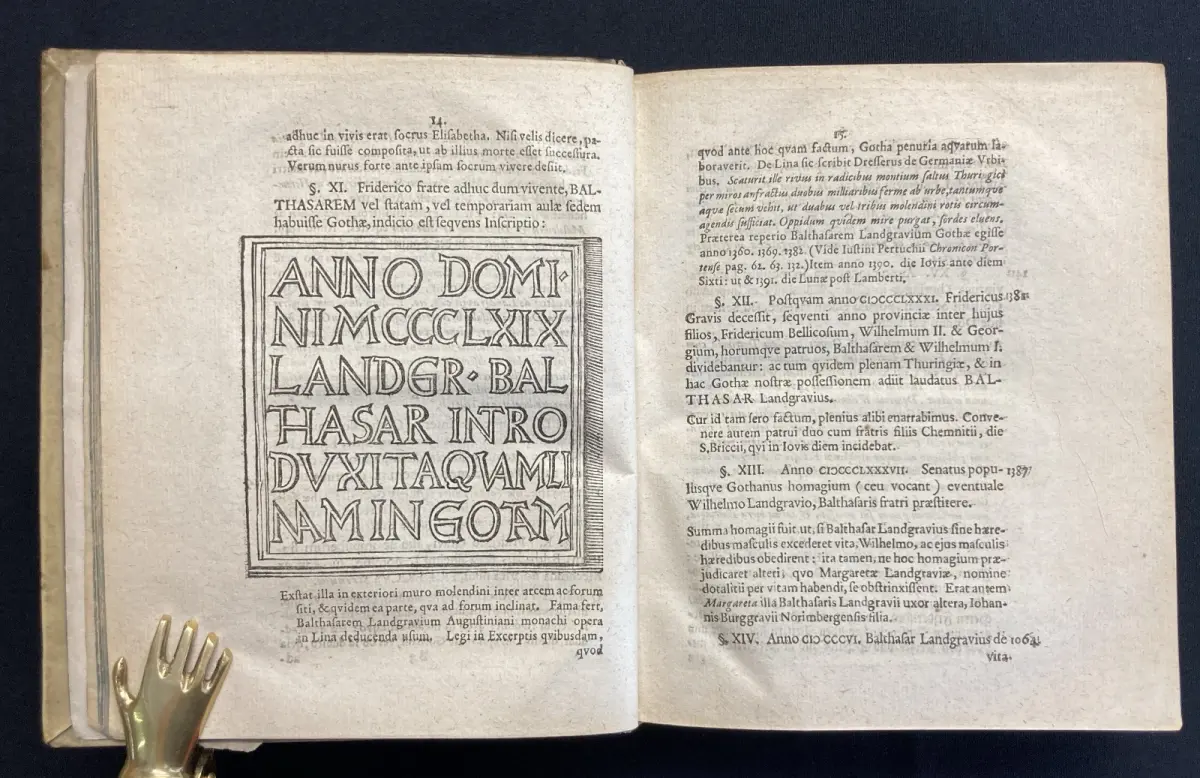 14.
adhuc in vivis erat socrus Elisabetha. Nisi velis dicere, pa-
cta sic fuisse composita, ut ab illius morte esset successura.
Verum nurus forte ante ipsam socrum vivere desiit.
§. XI. Friderico fratre adhuc dum vivente, BAL-
THASAREM vel statam, vel temporariam aulæ sedem
habuisse Gothæ, indicio est seqvens Inscriptio:
ANNO DOMI·
NI MCCCLXIX
LANDGR·BAL
THASAR INTRO
DVXIT AQVAM LI
NAM IN GOTAM
Exstat illa in exteriori muro molendini inter arcem ac forum
siti, & qvidem ea parte, qva ad forum inclinat. Fama fert,
Balthasarem Landgravium Augustiniani monachi opera
in Lina deducenda usum. Legi in Excerptis qvibusdam,
qvod
15.
qvod ante hoc qvam factum, Gotha penuria aqvarum la-
boraverit. De Lina sic scribit Dresserus de Germaniæ Vrbi-
bus. Scaturit ille rivus in radicibus montium saltus Thuringici
per miros anfractus duobus milliaribus ferme ab urbe, tantumqve
aqvæ secum vehit, ut duabus vel tribus molendini rotis circum-
agendis sufficiat. Oppidum qvidem mire purgat, sordes eluens.
Præterea reperio Balthasarem Landgravium Gothæ egisse
anno 1360. 1369. 1382. (Vide Iustini Pertuchii Chronicon Por-
tense pag. 62. 63. 132.) Item anno 1390. die Iovis ante diem
Sixti: ut & 1391. die Lunæ post Lamberti.
§. XII. Postqvam anno CIƆCCCLXXXI. Fridericus 1381.
Gravis decessit, seqventi anno provinciæ inter hujus
filios, Fridericum Bellicosum, Wilhelmum II. & Geor-
gium, horumqve patruos, Balthasarem & Wilhelmum I.
dividebantur: ac tum qvidem plenam Thuringiæ, & in
hac Gothæ nostræ possessionem adiit laudatus BAL-
THASAR Landgravius.
Cur id tam sero factum, plenius alibi enarrabimus. Conve-
nere autem patrui duo cum fratris filiis Chemnitii, die
S. Briccii, qvi in Iovis diem incidebat.
§. XIII. Anno CIƆCCCLXXXVII. Senatus popu- 1387.
lusqve Gothanus homagium (ceu vocant) eventuale
Wilhelmo Landgravio, Balthasaris fratri præstitere.
Summa homagii fuit ut, si Balthasar Landgravius sine hære-
dibus masculis excederet vita, Wilhelmo, ac ejus masculis
hæredibus obedirent: ita tamen, ne hoc homagium præ-
judicaret alteri, qvo Margaretæ Landgraviæ, nomine
dotalitii per vitam habendi, se obstrinxissent. Erat autem
Margareta illa Balthasaris Landgravii uxor altera, Iohan-
nis Burggravii Norimbergensis filia.
§. XIV. Anno CIƆ CCCVI. Balthasar Landgravius de 1064.
vita